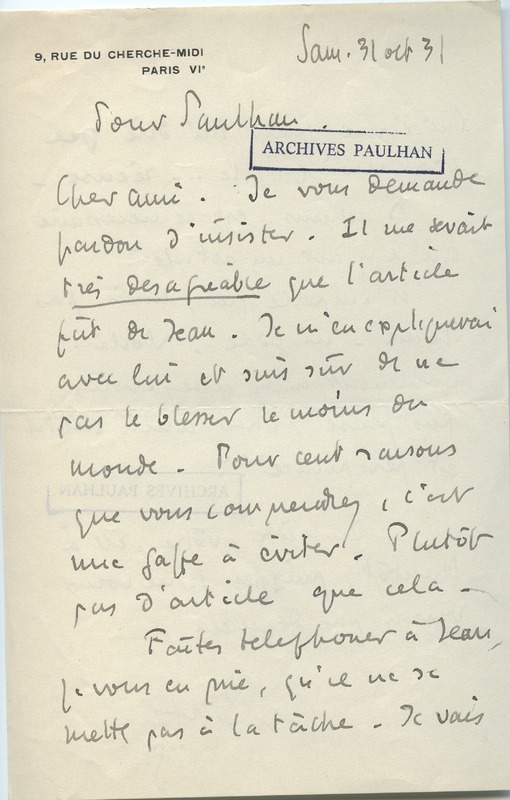 9, RUE DU CHERCHE-MIDI
PARIS VIᵉ
Sam. 31 oct 31
Pour Paulhan.
ARCHIVES PAULHAN
Cher ami. Je vous demande
pardon d'insister. Il me serait
très désagréable que l'article
fût de Jean. Je m'en expliquerai
avec lui et suis sûr de ne
pas le blesser le moins du
monde. Pour cent raisons
que vous comprendrez, c'est
une gaffe à éviter. Plutôt
pas d'article que cela.
Faites telephoner à Jean,
je vous en prie, qu'il ne se
mette pas à la tâche. Je vais
ARCHIVES PAULHAN